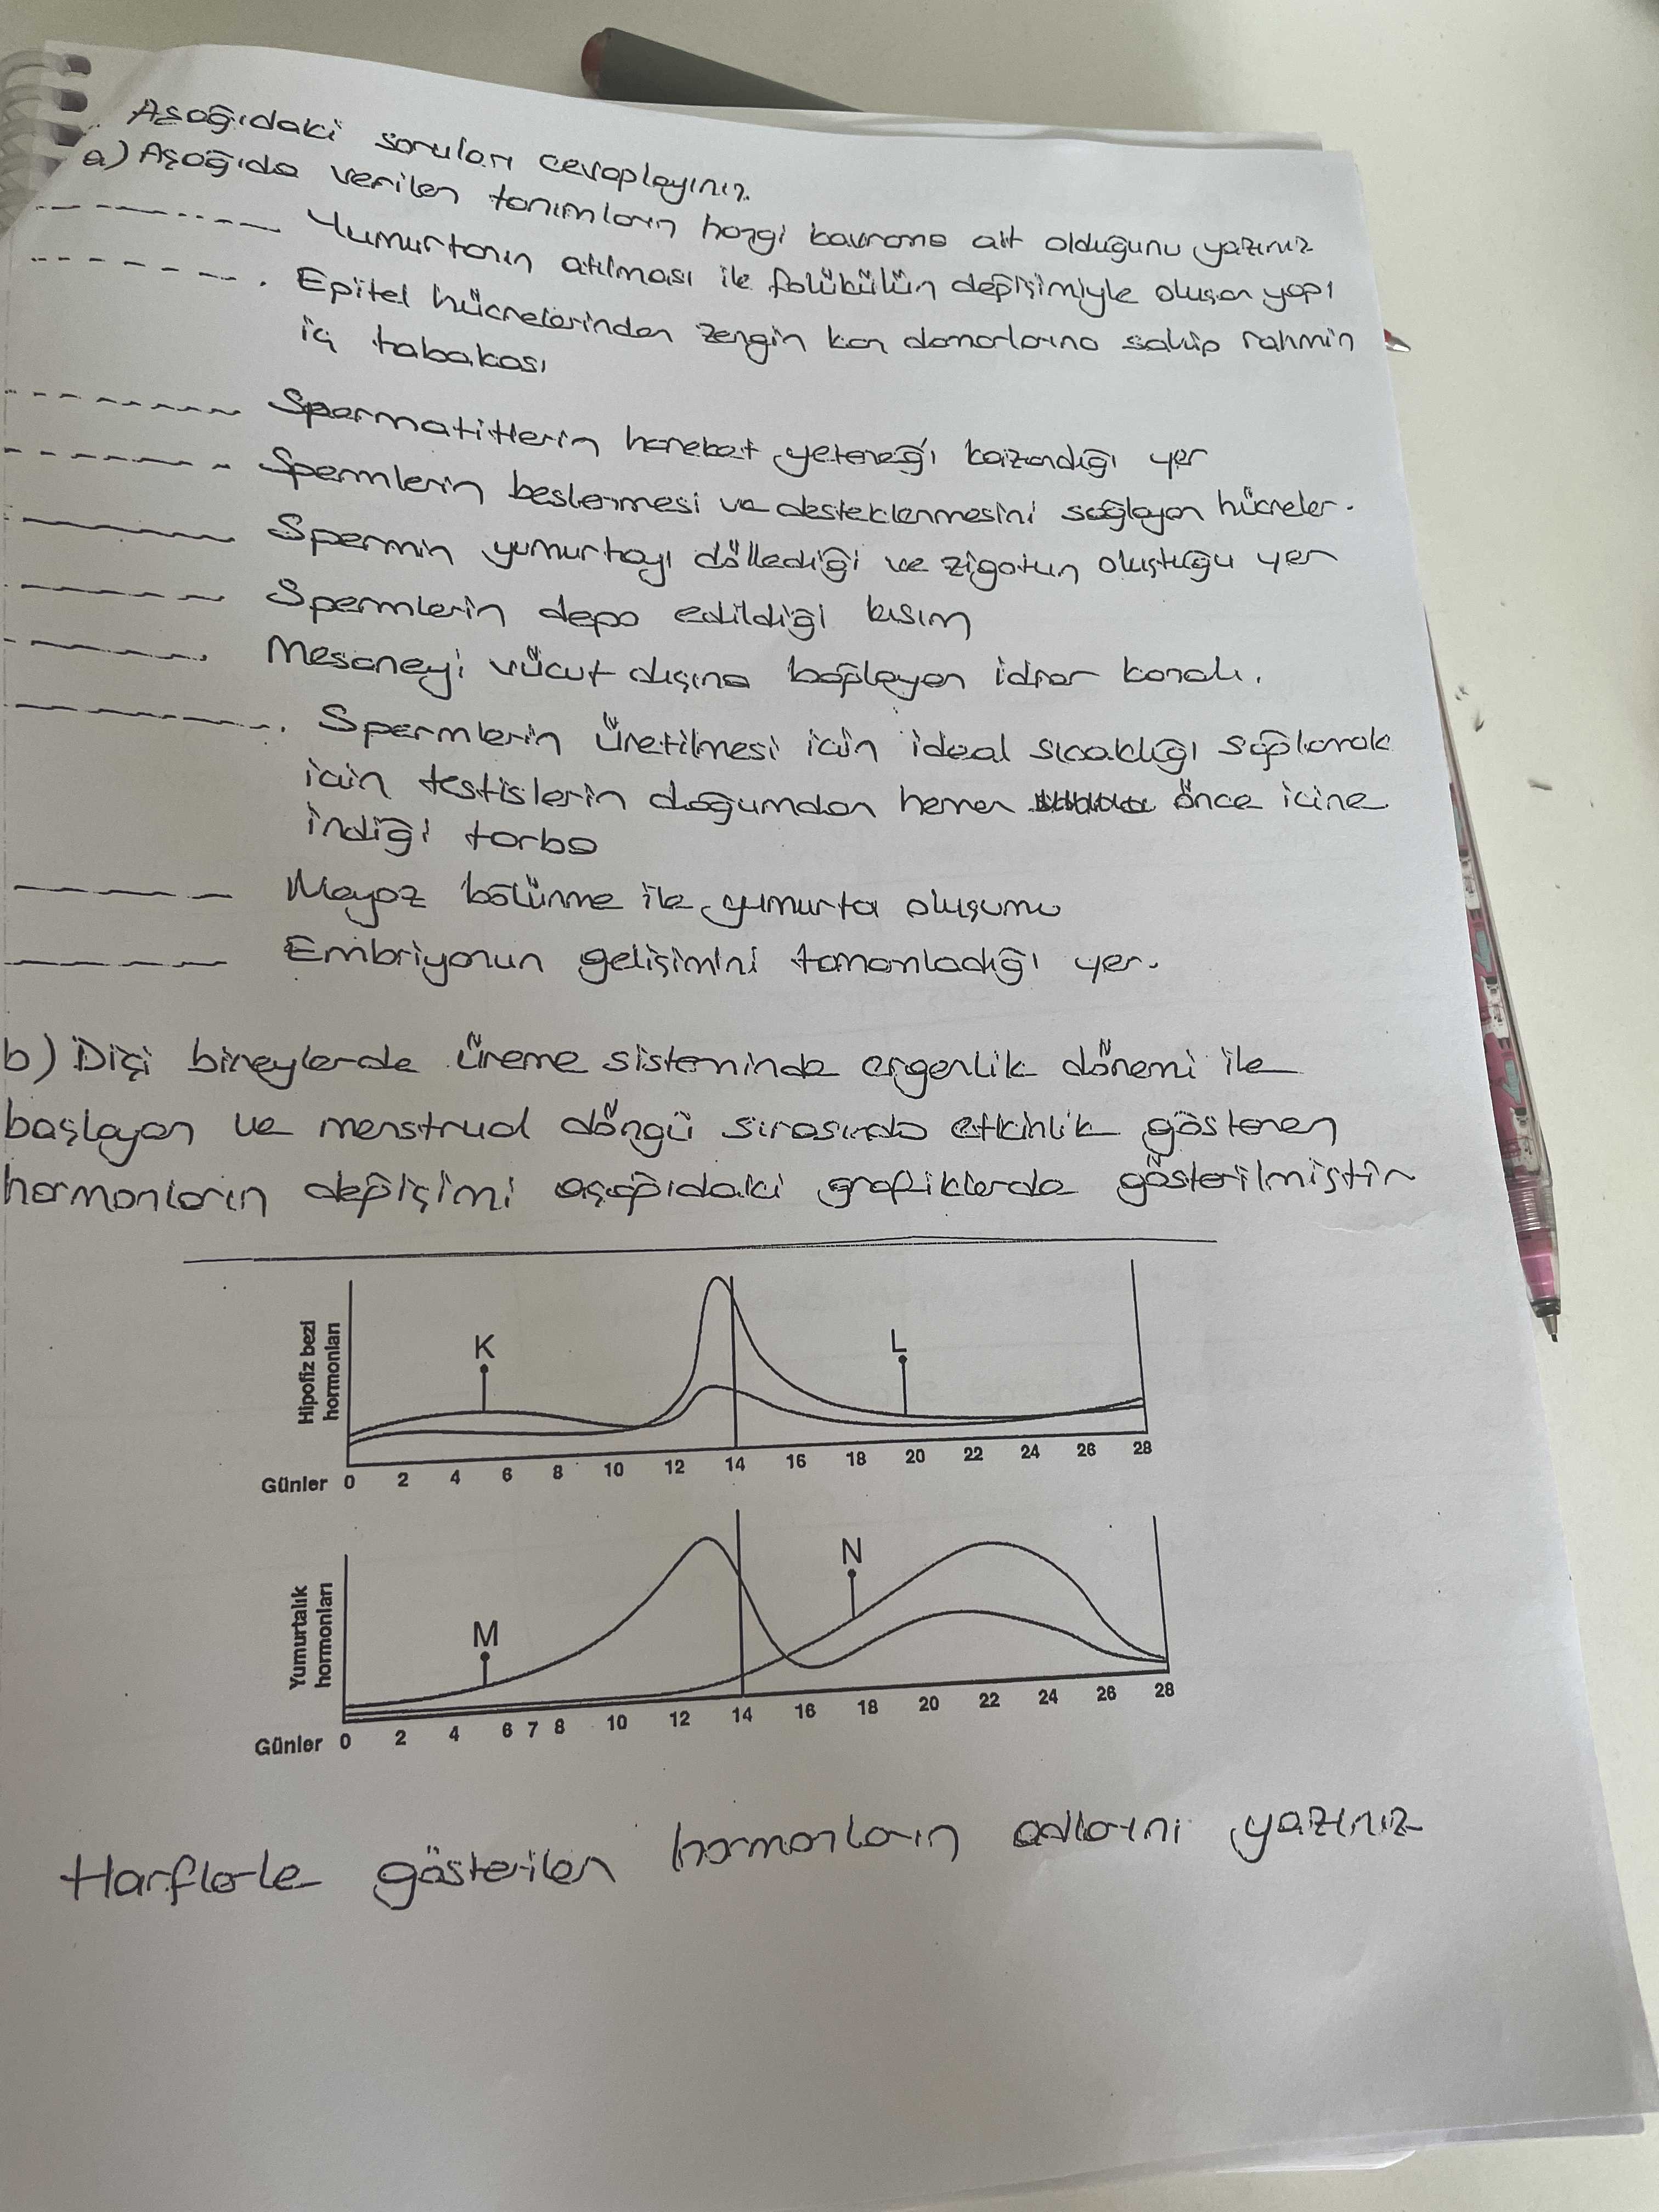 Aşağıdaki soruları cevaplayınız.
a) Aşağıda verilen tanımların hangi kavrama ait olduğunu yazınız
Yumurtanın atılması ile folükülün değişimiyle oluşan yapı
Epitel hücrelerinden zengin kan damarlarına sahip rahmin
iç tabakası
Spermatitlerin hareket yeteneği kazandığı yer
Spermlerin beslenmesi ve desteklenmesini sağlayan hücreler.
Spermin yumurtayı döllediği ve zigotun oluştuğu yer
Spermlerin depo edildiği kısım
Mesaneyi vücut dışına bağlayan idrar kanalı.
Spermlerin üretilmesi için ideal sıcaklığı sağlamak
için testislerin doğumdan hemen önce içine
indiği torba
Mayoz bölünme ile yumurta oluşumu
Embriyonun gelişimini tamamladığı yer.
b) Dişi bireylerde üreme sisteminde ergenlik dönemi ile
başlayan ve menstrual döngü sırasında etkinlik gösteren
hormonların değişimi aşağıdaki grafiklerde gösterilmiştir
Hipofiz bezi
hormonları
K
L
Günler 0 2 4 6 8 10 12 14 16 18 20 22 24 26 28
Yumurtalık
hormonları
M
N
Günler 0 2 4 6 7 8 10 12 14 16 18 20 22 24 26 28
Harflerle gösterilen hormonların adlarını yazınız